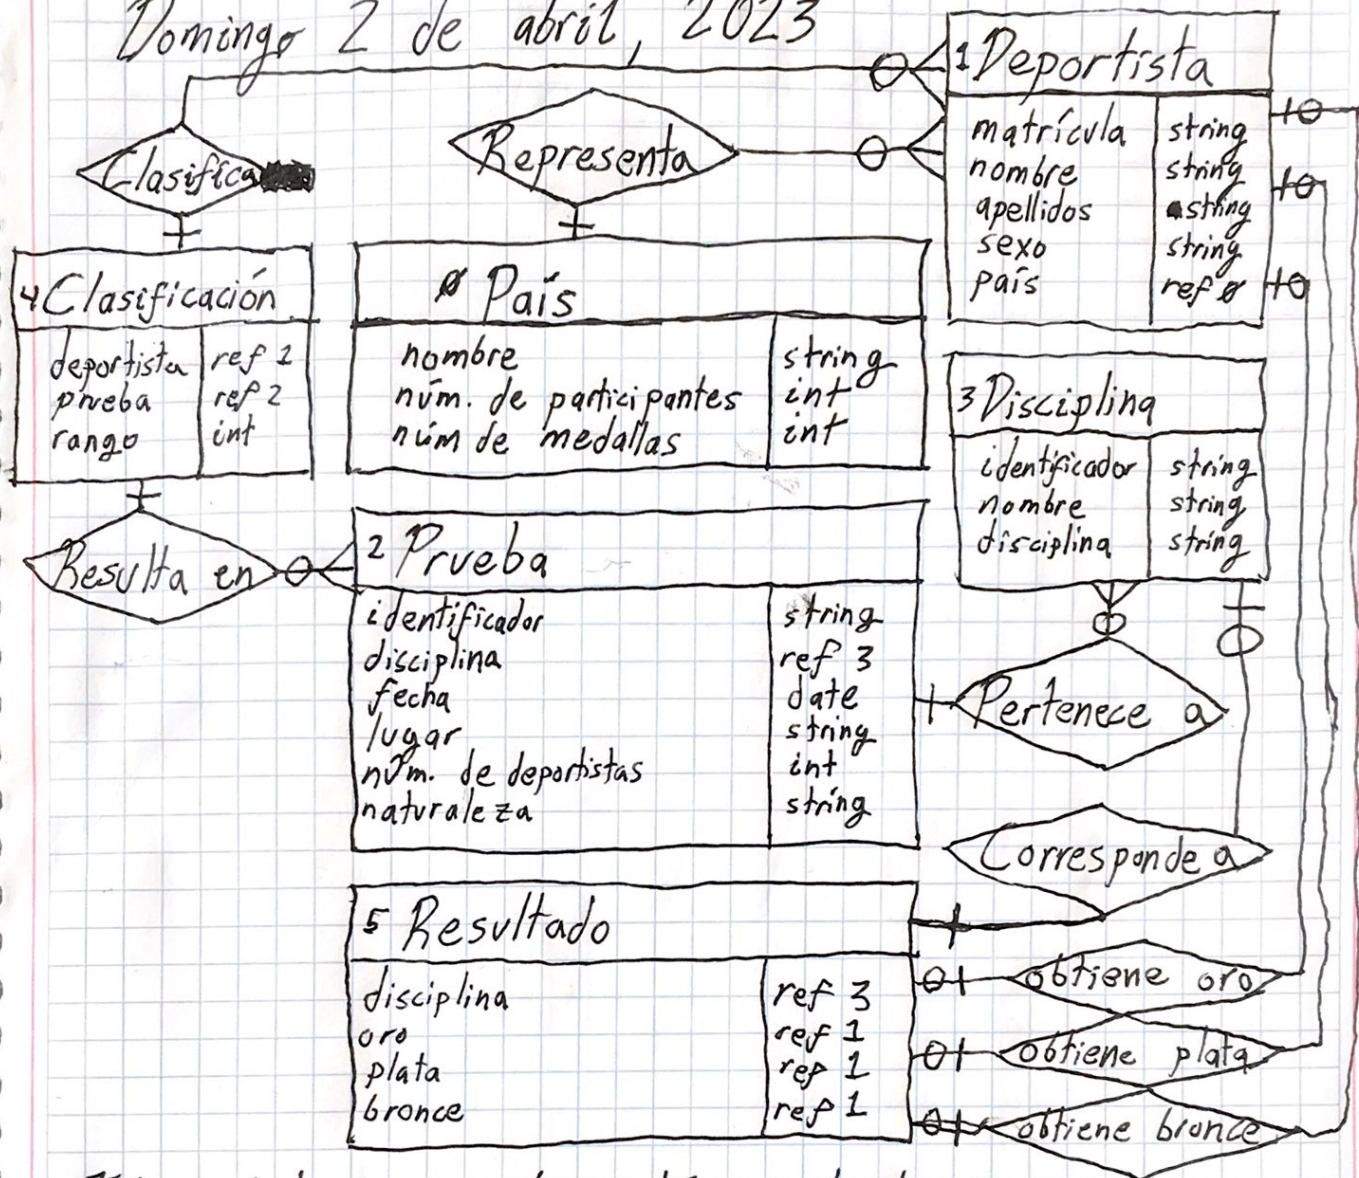 Domingo 2 de abril, 2023
1 Deportista
matrícula string
nombre string
apellidos string
sexo string
país ref 0
Clasifica
Representa
4 Clasificación
deportista ref 1
prueba ref 2
rango int
0 País
nombre string
núm. de participantes int
núm de medallas int
3 Disciplina
identificador string
nombre string
disciplina string
Resulta en
2 Prueba
identificador string
disciplina ref 3
fecha date
lugar string
núm. de deportistas int
naturaleza string
Pertenece a
Corresponde a
5 Resultado
disciplina ref 3
oro ref 1
plata ref 1
bronce ref 1
obtiene oro
obtiene plata
obtiene bronce